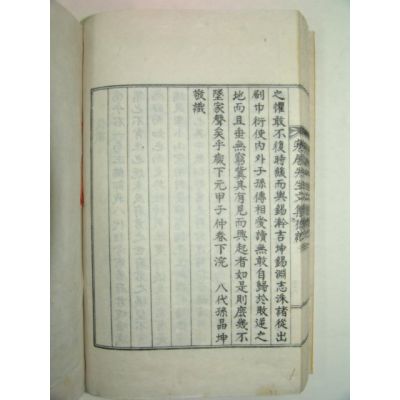 之懼敢不復時餞而與錫瀚吉坤錫淵志洙諸從出
刷巾衍使內外子孫傳相愛讀無敢自歸於散逆之
地而且垂無窮冀具有見而興起者如是則庶幾不
墜家聲矣乎歲下元甲子仲春下浣 八代孫晶坤
敬識